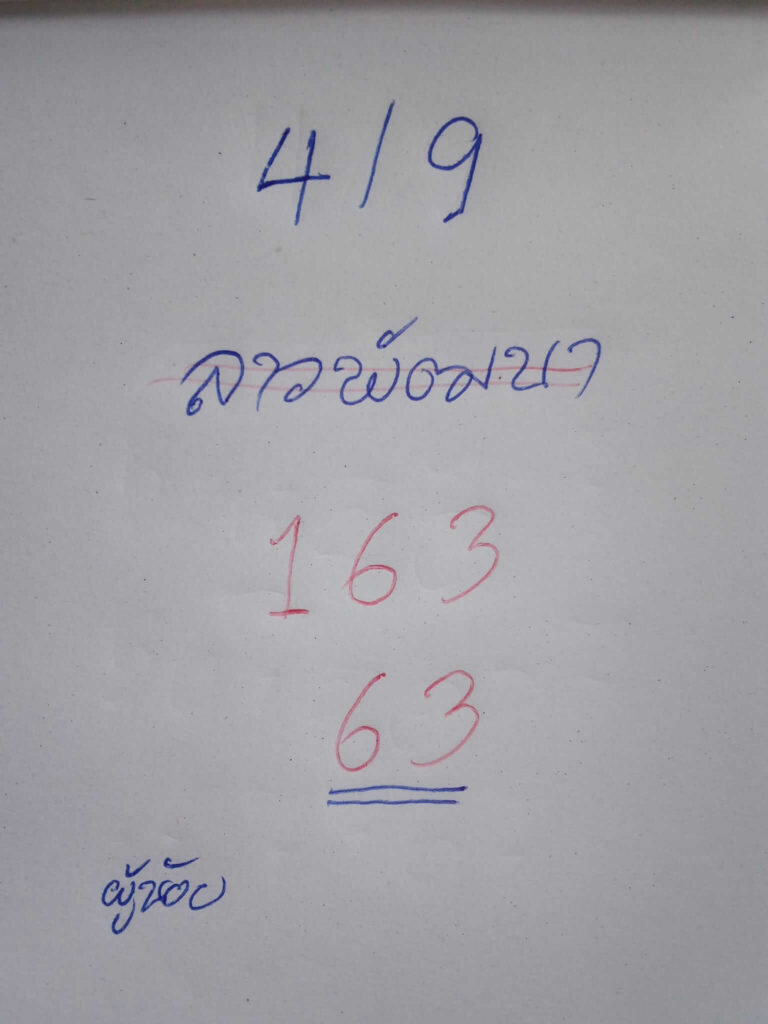 4/9
ลาวพัฒนา
163
63
ผู้น้อย